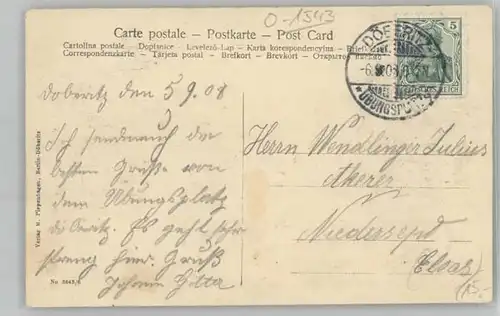 O-1543
Carte postale – Postkarte – Post Card
Cartolina postale – Dopisnice – Levelező-Lap – Karta korespondencyjna –
Correspondenzkarte – Tarjeta postal – Brefkort – Brevkort – Открытое
DOEBERITZ
-6.9.08
ÜBUNGSPLATZ
5
REICH
Doberitz den 5 9. 08
Ich send euch die
besten Grüße von
dem Übungsplatz
Es geht sehr
streng hier. Gruß
Johann
Herrn Wendlinger Julius
Akerer
Niedersept
Elsas
15.-
Verlag R. Piepenhagen, Berlin-Döberitz
No 3643/6